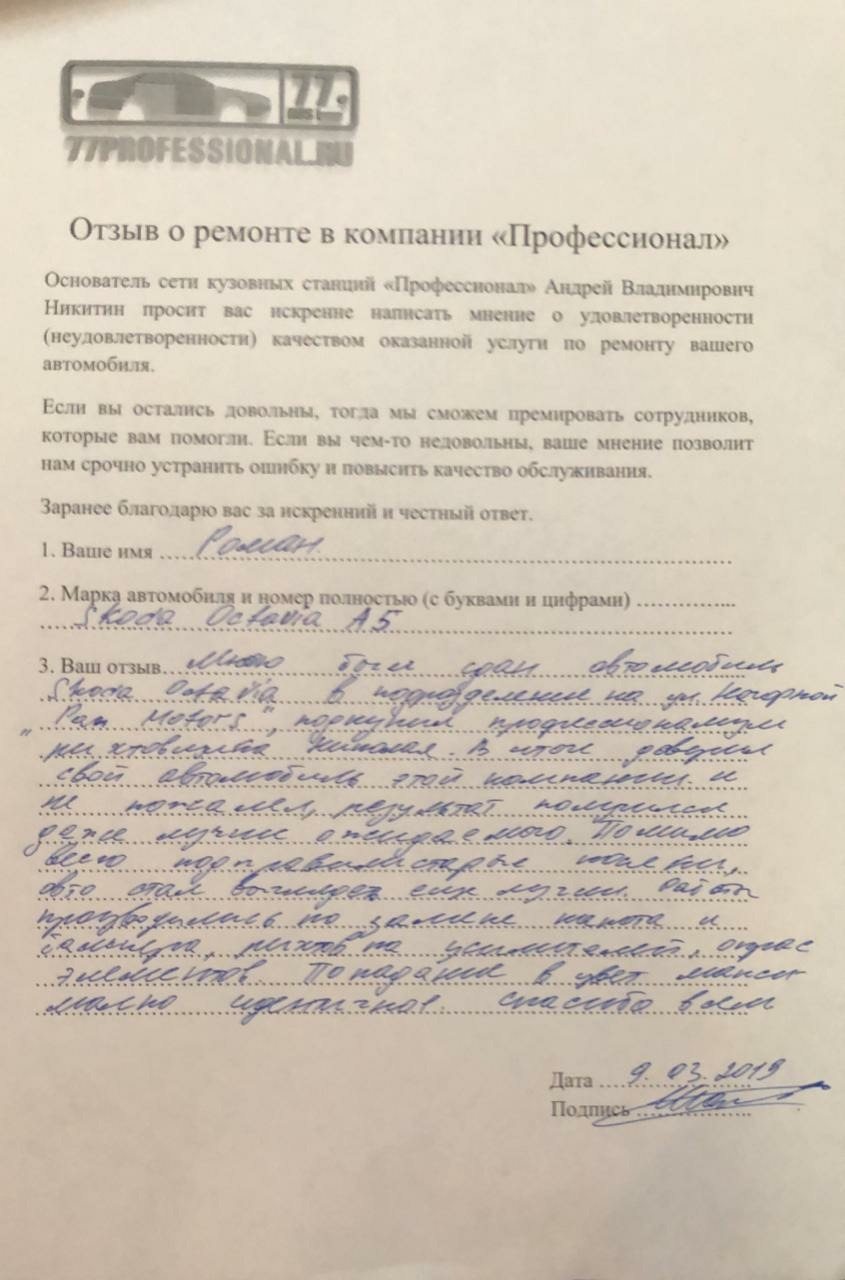 77
77PROFESSIONAL.RU
Отзыв о ремонте в компании «Профессионал»
Основатель сети кузовных станций «Профессионал» Андрей Владимирович
Никитин просит вас искренне написать мнение о удовлетворенности
(неудовлетворенности) качеством оказанной услуги по ремонту вашего
автомобиля.
Если вы остались довольны, тогда мы сможем премировать сотрудников,
которые вам помогли. Если вы чем-то недовольны, ваше мнение позволит
нам срочно устранить ошибку и повысить качество обслуживания.
Заранее благодарю вас за искренний и честный ответ.
1. Ваше имя Роман
2. Марка автомобиля и номер полностью (с буквами и цифрами)
Skoda Octavia A5
3. Ваш отзыв Мною был сдан автомобиль
Skoda Octavia в подразделение на ул. Нагорной
"Pan Motors", подкупил профессионализм
рихтовщика Николая. В итоге доверил
свой автомобиль этой компании и
не пожалел, результат получился
даже лучше ожидаемого. Помимо
всего подправили старые
авто стал выглядеть еще лучше. Работы
производились по замене капота и
бампера, рихтовка усилителей, окрас
элементов. Попадание в цвет макси
мально идентичное. спасибо всем
Дата 9.03.2019
Подпись